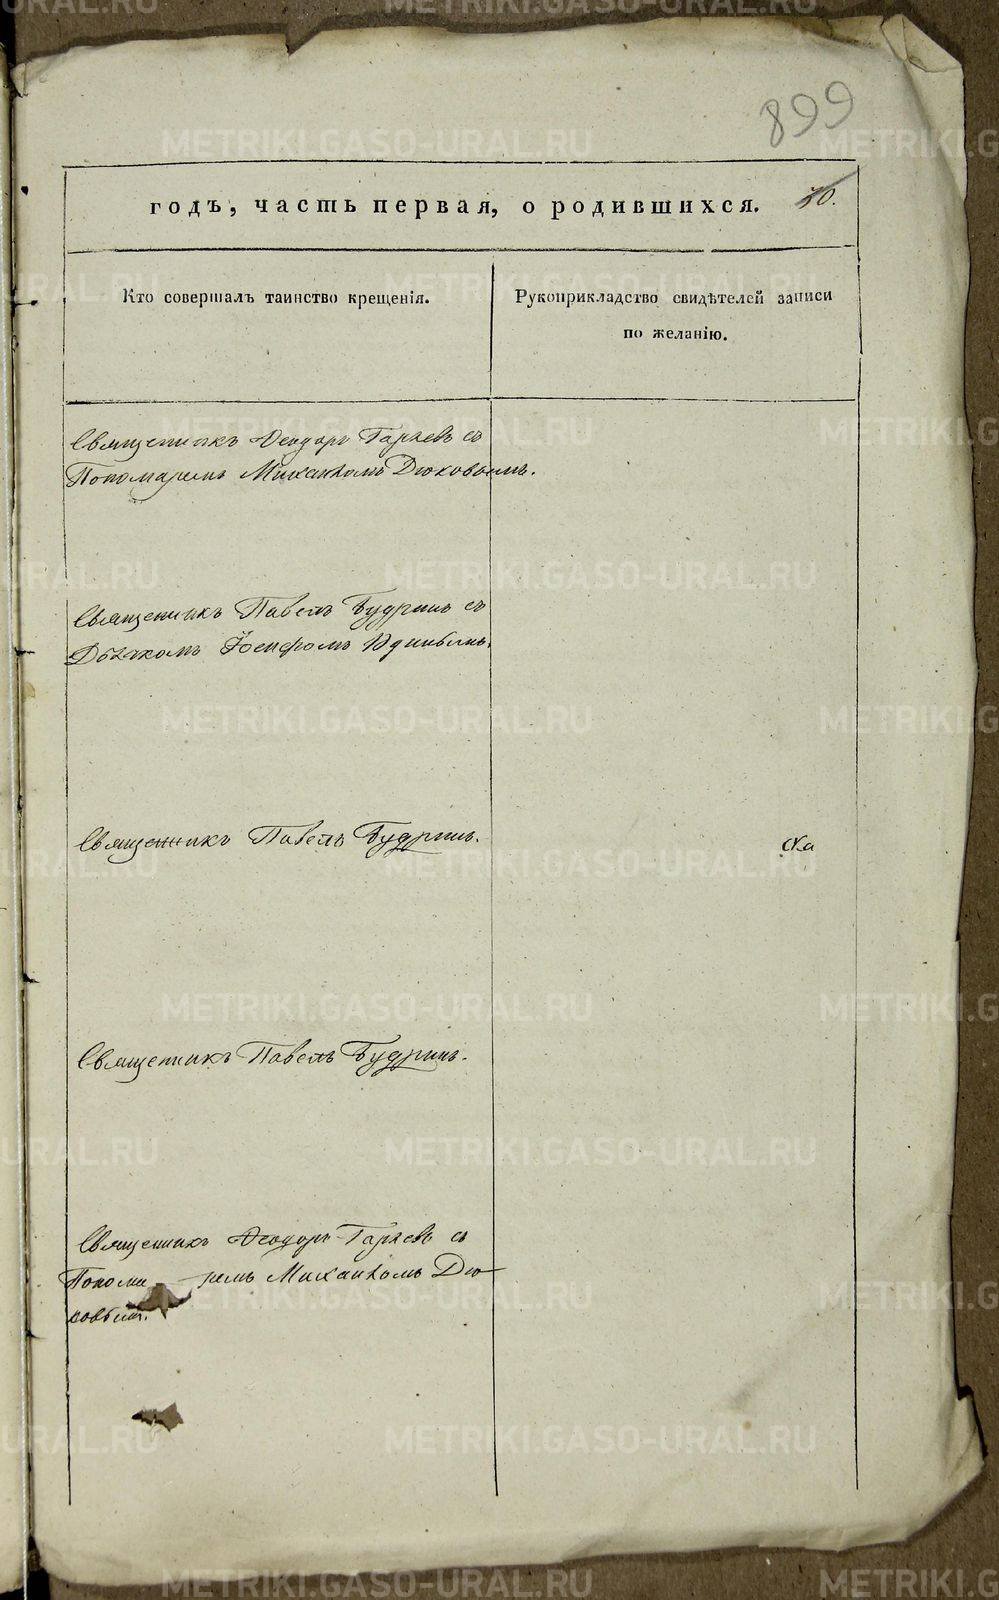 899
годъ, часть первая, о родившихся.
10.
Кто совершалъ таинство крещенія.
Рукоприкладство свидѣтелей записи
по желанію.
Священникъ Ѳеодоръ Гаряевъ съ
Пономаремъ Михаиломъ Дюковымъ.
Священникъ Павелъ Будринъ съ
Дьячкомъ Іосифомъ Удинымъ.
Священникъ Павелъ Будринъ.
Священникъ Павелъ Будринъ.
Священникъ Ѳеодоръ Гаряевъ съ
Пономаремъ Михаиломъ Дю-
ковымъ.
METRIKI.GASO-URAL.RU